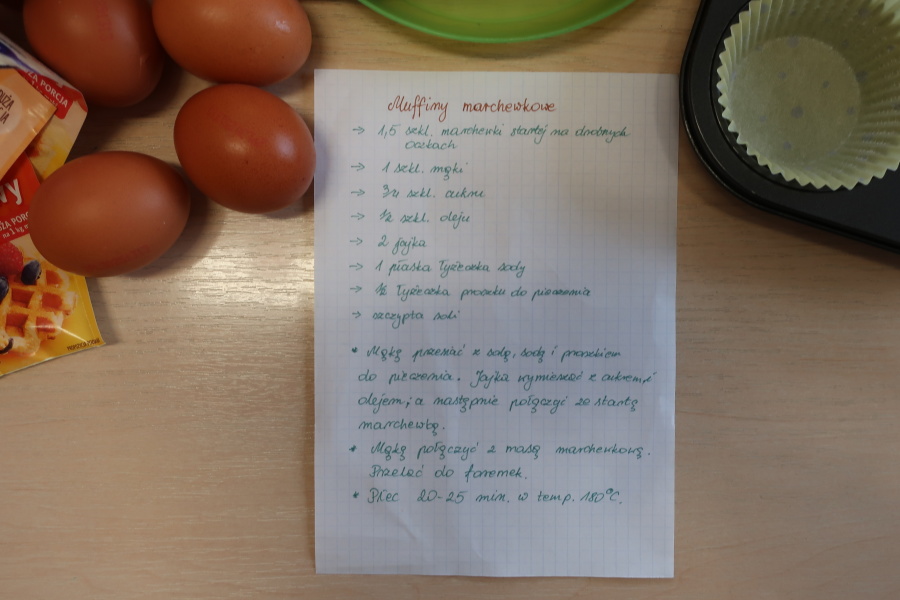 UŻA PORCJA
DUŻA
wy
UŻA PORC
na 1 kg m
Muffiny marchewkowe
→ 1,5 szkl. marchewki startej na drobnych
oczkach
→ 1 szkl. mąki
→ 3/4 szkl. cukru
→ 1/2 szkl. oleju
→ 2 jajka
→ 1 płaska łyżeczka sody
→ 1/2 łyżeczka proszku do pieczenia
→ szczypta soli
* Mąkę przesiać z solą, sodą i proszkiem
do pieczenia. Jajka wymieszać z cukrem i
olejem; a następnie połączyć ze startą
marchewką.
* Mąkę połączyć z masą marchewkową.
Przelać do foremek.
* Piec 20-25 min. w temp. 180°C.